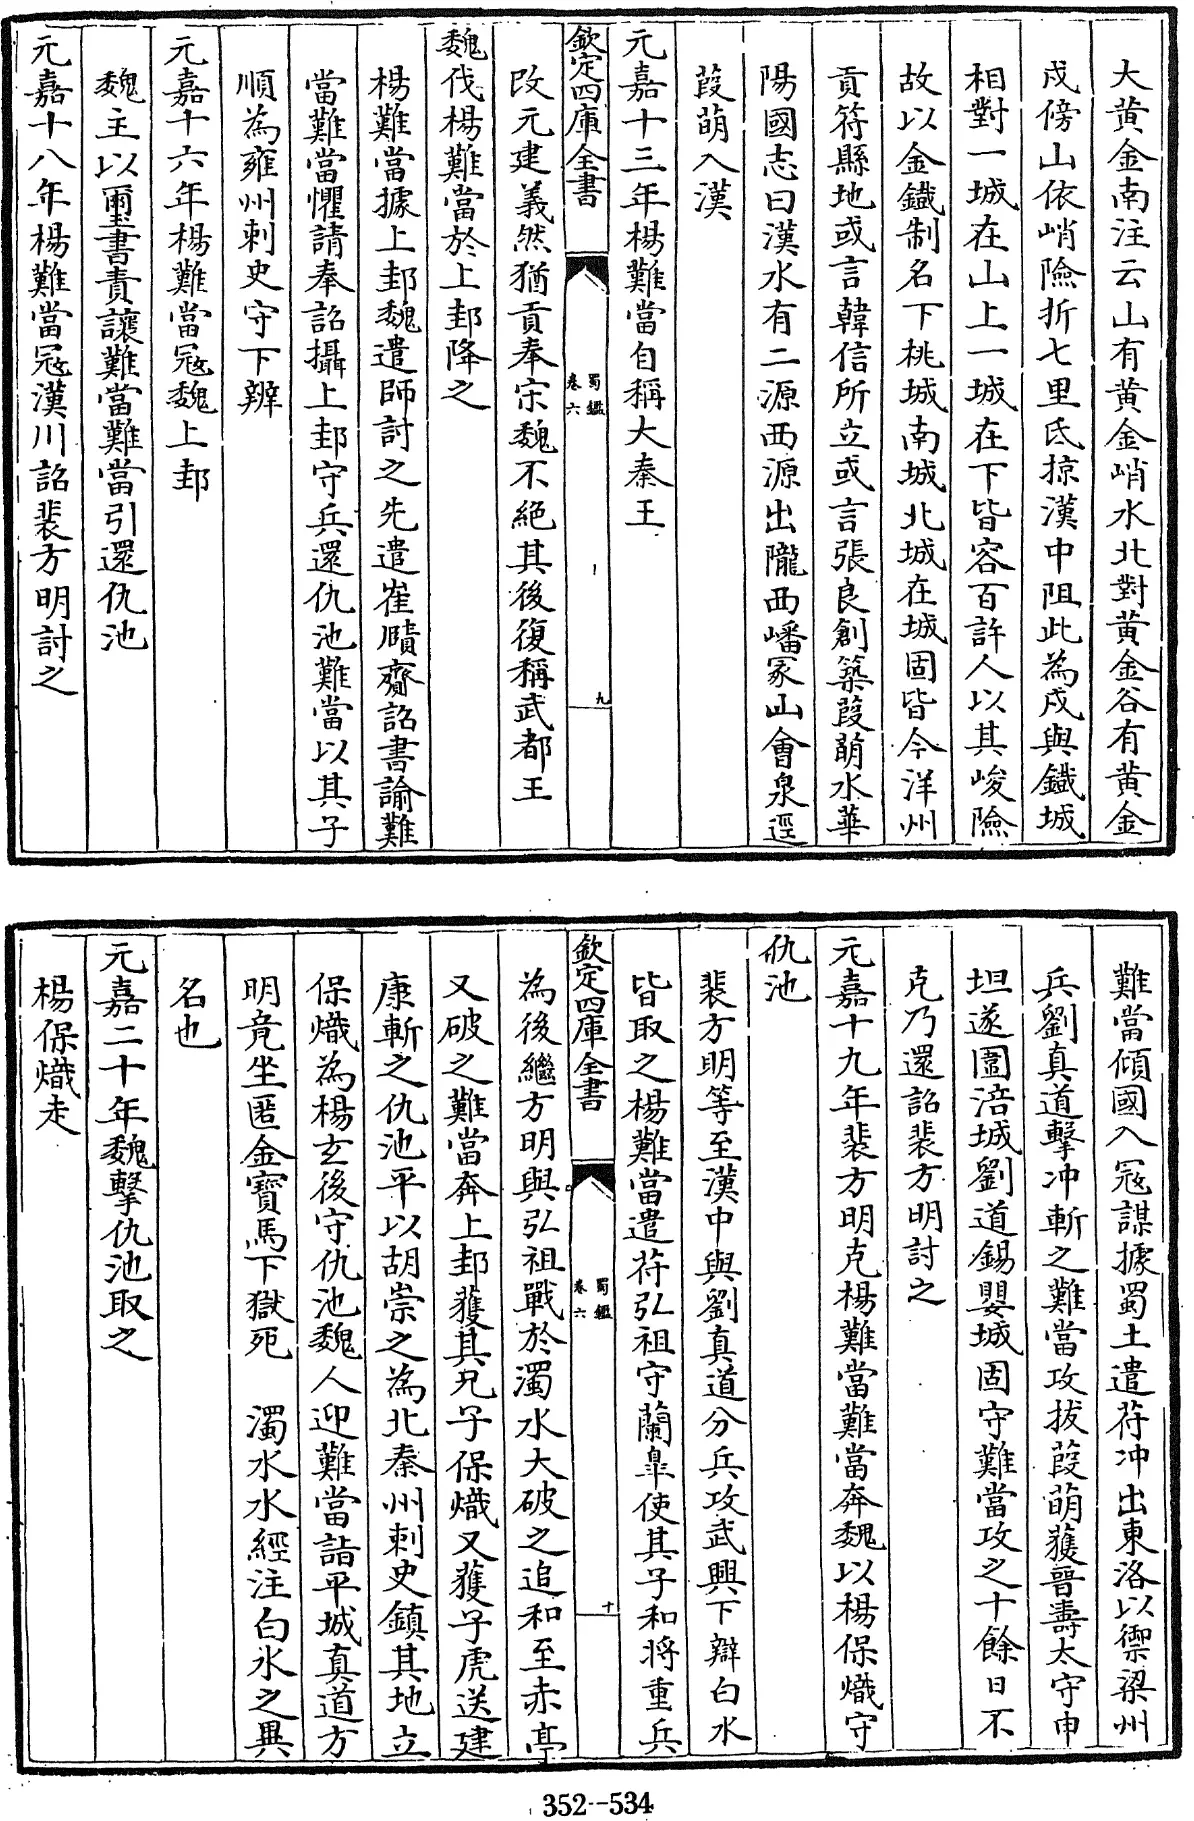 大黄金南注云山有黄金峭水北對黄金谷有黄金
戍傍山依峭險折七里氐掠漢中阻此為戍與鐵城
相對一城在山上一城在下皆容百許人以其峻險
故以金鐵制名下桃城南城北城在城固皆今洋州
貢符縣地或言韓信所立或言張良創築葭萌水華
陽國志曰漢水有二源西源出隴西嶓冢山會泉逕
葭萌入漢
元嘉十三年楊難當自稱大秦王
欽定四庫全書
蜀鑑
卷六
九
改元建義然猶貢奉宋魏不絶其後復稱武都王
魏伐楊難當於上邽降之
楊難當據上邽魏遣師討之先遣崔賾齎詔書諭難
當難當懼請奉詔攝上邽守兵還仇池難當以其子
順為雍州刺史守下辨
元嘉十六年楊難當冦魏上邽
魏主以璽書責讓難當難當引還仇池
元嘉十八年楊難當冦漢川詔裴方明討之
難當傾國入冦謀據蜀土遣苻冲出東洛以禦梁州
兵劉真道擊冲斬之難當攻拔葭萌獲晉壽太守申
坦遂圍涪城劉道錫嬰城固守難當攻之十餘日不
克乃還詔裴方明討之
元嘉十九年裴方明克楊難當難當奔魏以楊保熾守
仇池
裴方明等至漢中與劉真道分兵攻武興下辯白水
皆取之楊難當遣苻弘祖守蘭臯使其子和將重兵
欽定四庫全書
蜀鑑
卷六
十
為後繼方明與弘祖戰於濁水大破之追和至赤亭
又破之難當奔上邽獲其兄子保熾又獲子虎送建
康斬之仇池平以胡崇之為北秦州刺史鎮其地立
保熾為楊玄後守仇池魏人迎難當詣平城真道方
明竟坐匿金寶馬下獄死　濁水水經注白水之異
名也
元嘉二十年魏擊仇池取之
楊保熾走
352--534